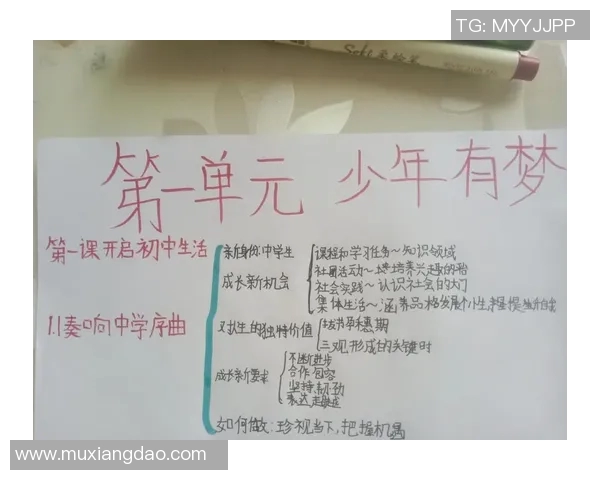 TG: MYYJJPP
第一单元 少年有梦
第一课开启初中生活
1.1奏响中学序曲
新身份:中学生
成长新机会
课程和学习任务~知识领域
社团活动~培养兴趣的
社会实践~认识社会的大门
集体生活~涵养品格发展个性
对人生的独特价值
拔节孕穗期
三观形成的关键时
成长新要求
不断进步
合作包容
坚持劳动
表达
如何做:珍视当下,把握机遇
www.muxiangdao.com